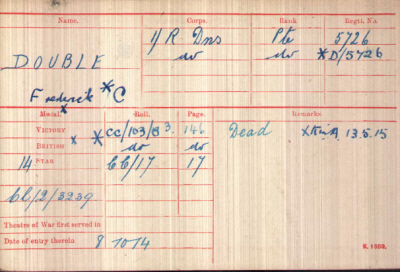 Name. Corps. Rank Regtl. No.
DOUBLE 1/R Dns Pte 5726
do do *D/5726
Frederick *C
Medal. Roll. Page. Remarks.
VICTORY x *CC/103/B3. 146 Dead x K in A 13.5.15
BRITISH do do
14 STAR CC/17 17
CL/2/3239
Theatre of War first served in
Date of entry therein 8 10 14
K. 1380.